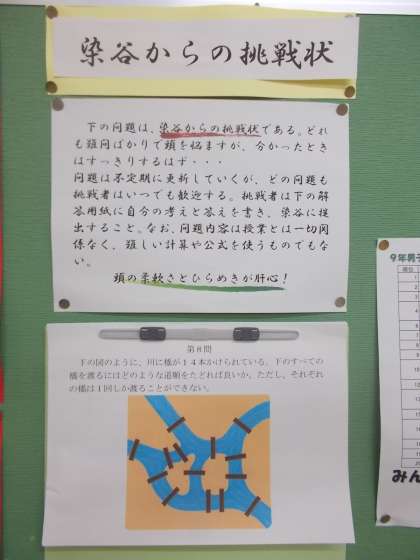 染谷からの挑戦状
下の問題は、染谷からの挑戦状である。どれ
も難問ばかりで頭を悩ますが、分かったとき
はすっきりするはず・・・
問題は不定期に更新していくが、どの問題も
挑戦者はいつでも歓迎する。挑戦者は下の解
答用紙に自分の考えと答えを書き、染谷に提
出すること。なお、問題内容は授業とは一切関
係なく、難しい計算や公式を使うものでもな
い。
頭の柔軟さとひらめきが肝心！
第８問
下の図のように、川に橋が１４本かけられている。下のすべての
橋を渡るにはどのような道順をたどれば良いか。ただし、それぞれ
の橋は１回しか渡ることができない。
９年男子
順位
みん